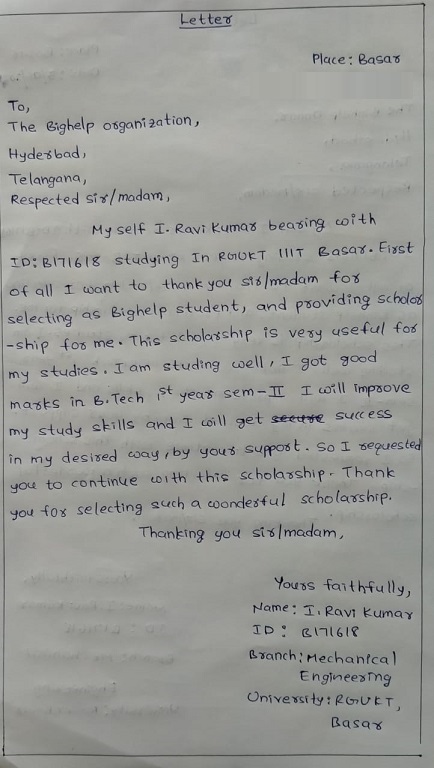 Letter
Place: Basar
To,
The Bighelp organization,
Hyderbad,
Telangana,
Respected sir/madam,
My self I. Ravi Kumar bearing with
ID: B171618 studying In RGUKT IIIT Basar. First
of all I want to thank you sir/madam for
selecting as Bighelp student, and providing scholar
-ship for me. This scholarship is very useful for
my studies. I am studing well, I got good
marks in B.Tech 1st year sem-II I will improve
my study skills and I will get secure success
in my desired way, by your support. So I requested
you to continue with this scholarship. Thank
you for selecting such a wonderful scholarship.
Thanking you sir/madam,
Yours faithfully,
Name: I. Ravi Kumar
ID: B171618
Branch: Mechanical
Engineering
University: RGUKT,
Basar